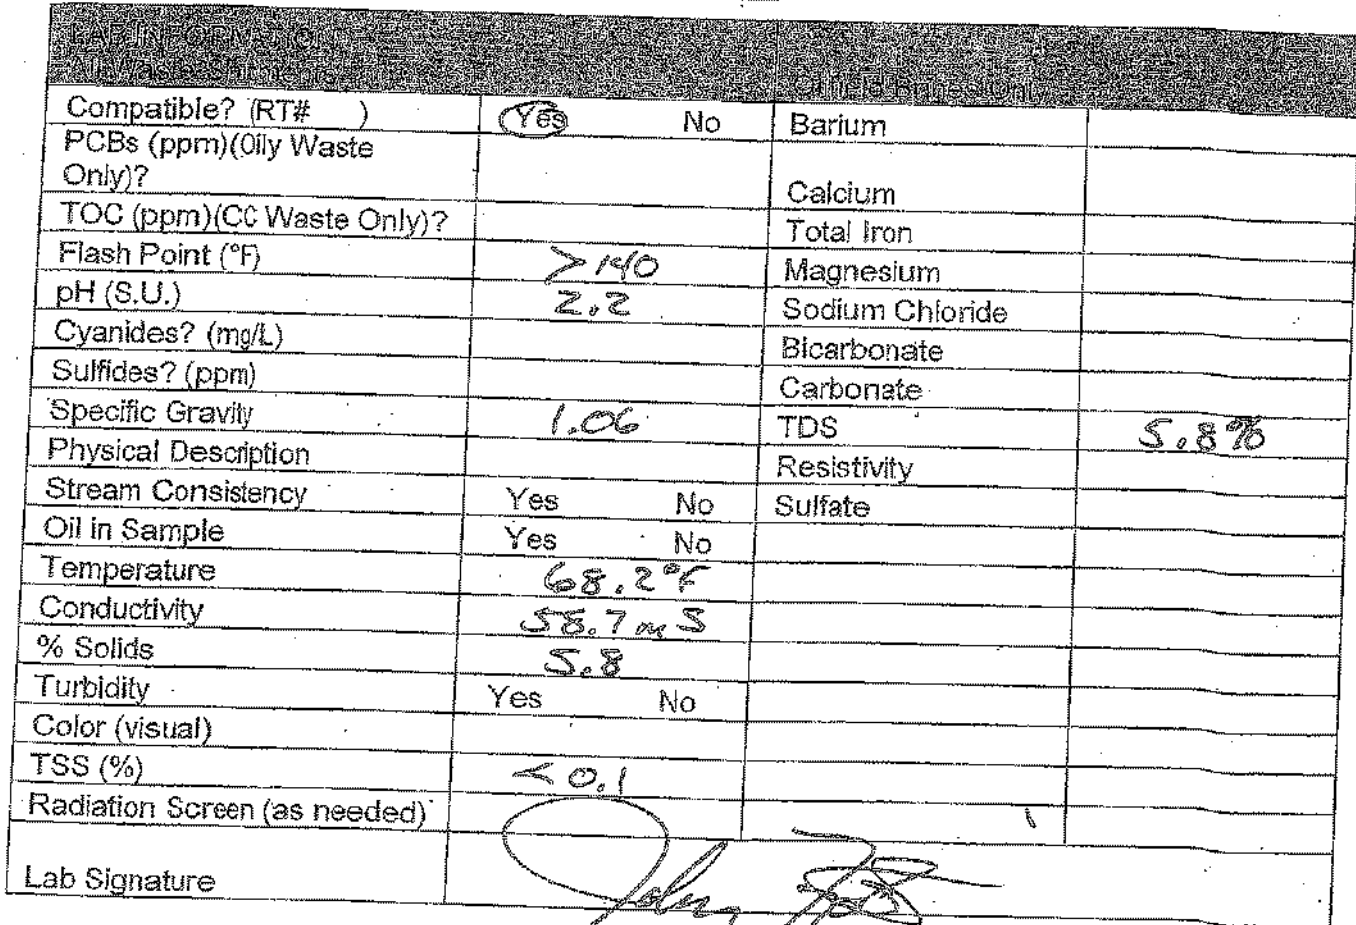 LAB INFORMATION
All Waste Shipments
Oilfield Brines Only
Compatible? (RT# ) Yes No Barium
PCBs (ppm)(Oily Waste
Only)?
Calcium
TOC (ppm)(CC Waste Only)?
Total Iron
Flash Point (°F) >140
Magnesium
pH (S.U.) 2.2
Sodium Chloride
Cyanides? (mg/L)
Bicarbonate
Sulfides? (ppm)
Carbonate
Specific Gravity 1.06
TDS 5.8%
Physical Description
Resistivity
Stream Consistency Yes No Sulfate
Oil in Sample Yes No
Temperature 68.2°F
Conductivity 58.7 mS
% Solids 5.8
Turbidity Yes No
Color (visual)
TSS (%) <0.1
Radiation Screen (as needed)
Lab Signature